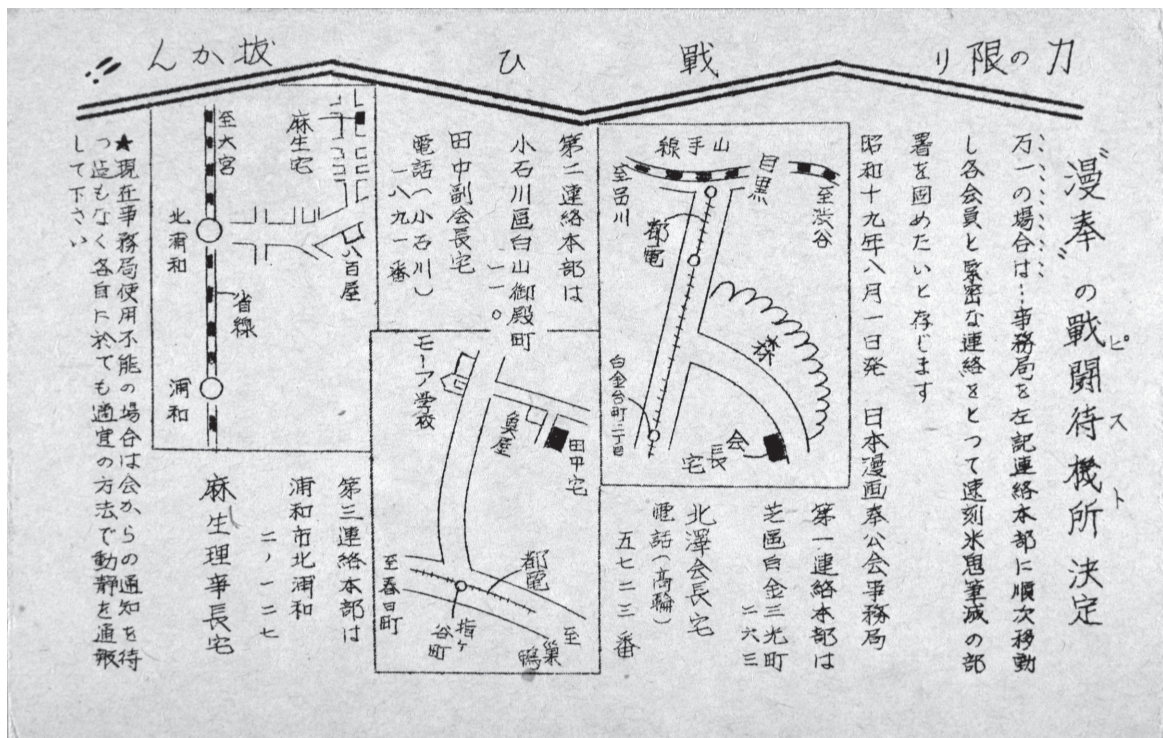 力の限り戰ひ抜かん!!
〝漫奉〟の戰闘待機所決定
ピスト
万一の場合は…事務局を左記連絡本部に順次移動
し各会員と緊密な連絡をとつて速刻米鬼筆滅の部
署を固めたいと存じます
昭和十九年八月一日発 日本漫画奉公会事務局
第一連絡本部は
芝區白金三光町
二六三
北澤会長宅
電話(高輪)
五七二三番
山手線
目黒
至渋谷
至品川
都電
森
白金台町二丁目
会長宅
第二連絡本部は
小石川區白山御殿町
一一〇
田中副会長宅
電話(小石川)
一八九一番
モーア学校
魚屋
田中宅
都電
至春日町
指ヶ谷町
至巣鴨
第三連絡本部は
浦和市北浦和
二ノ一二七
麻生理事長宅
至大宮
麻生宅
八百屋
北浦和
省線
浦和
★現在事務局使用不能の場合は会からの通知を待
つ迄もなく各自に於ても適宜の方法で動静を通報
して下さい